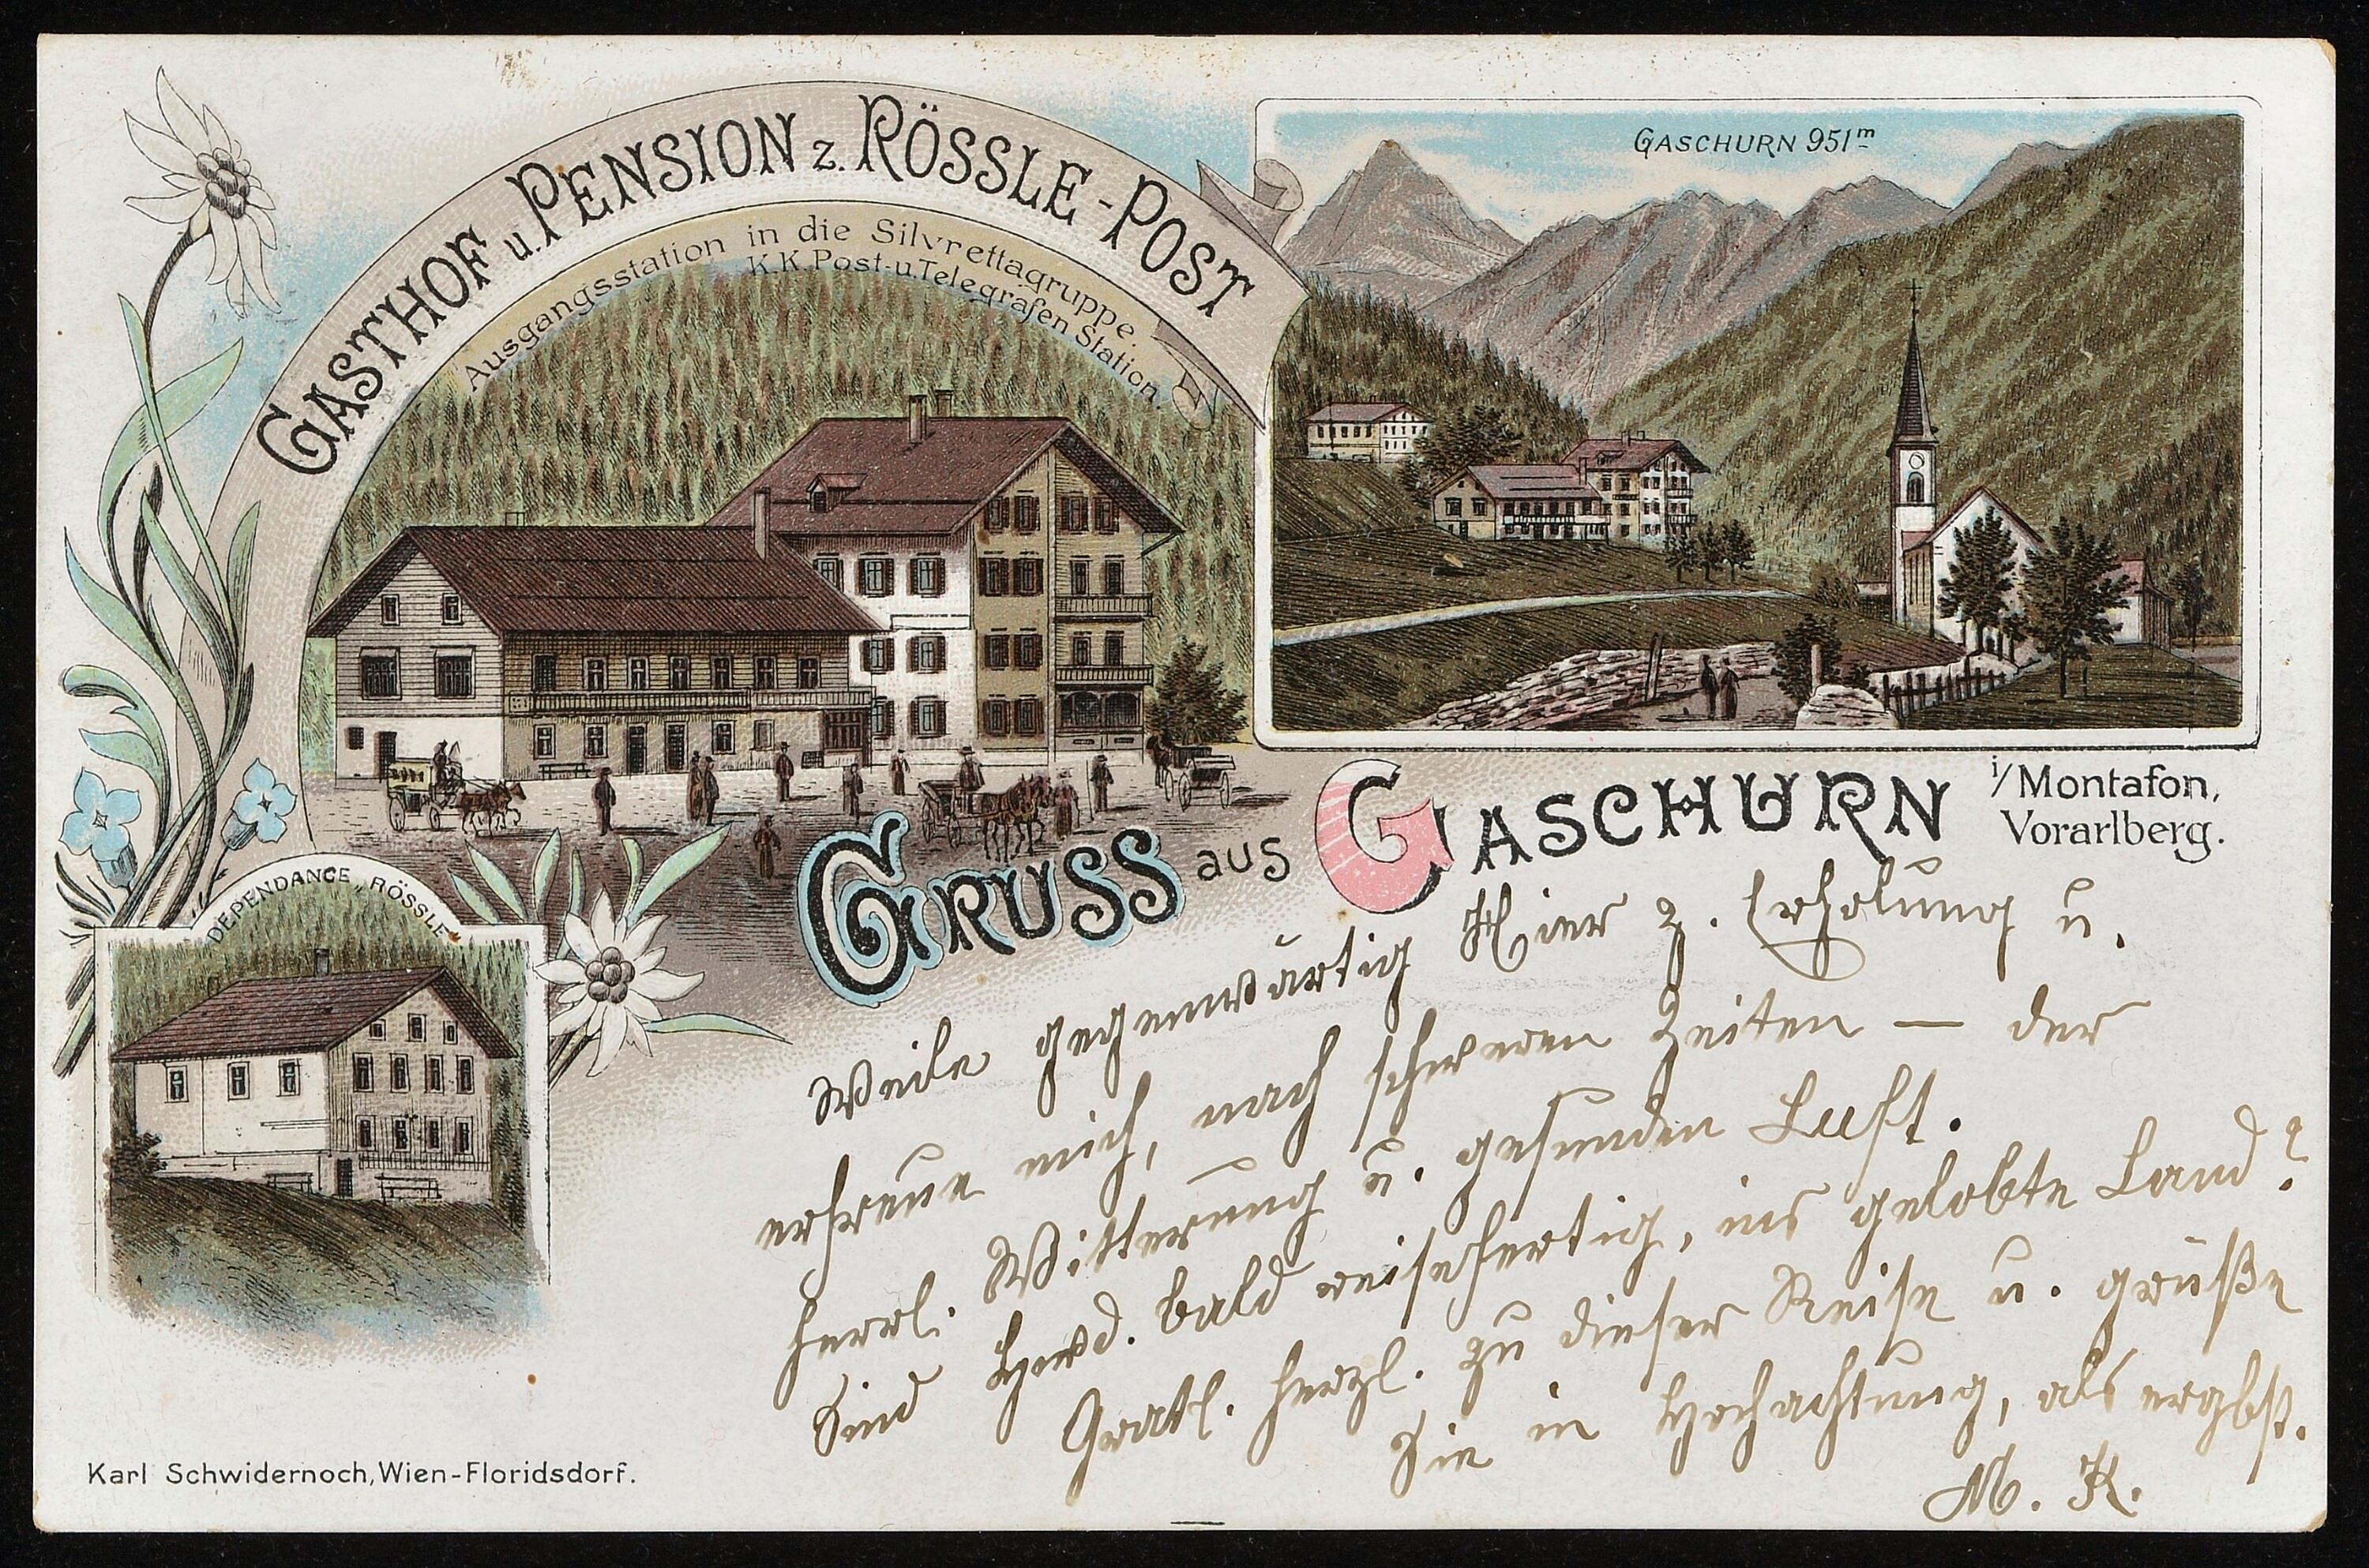 GASTHOF u. PENSION z. RÖSSLE-POST
Ausgangsstation in die Silvrettagruppe.
K.K. Post- u. Telegrafen Station.
GASCHURN 951m
GRUSS aus GASCHURN
i/Montafon,
Vorarlberg.
DEPENDANCE „RÖSSLE"
Weile gegenwärtig hier z. Erholung u.
erfreue mich, nach schweren Zeiten — der
herrl. Witterung u. gesunden Luft.
Sind Hwd. bald reisefertig, ins gelobte Land?
Gratl. herzl. zu dieser Reise u. grüße
Sie in Hochachtung, als ergbst.
M. K.
Karl Schwidernoch, Wien-Floridsdorf.